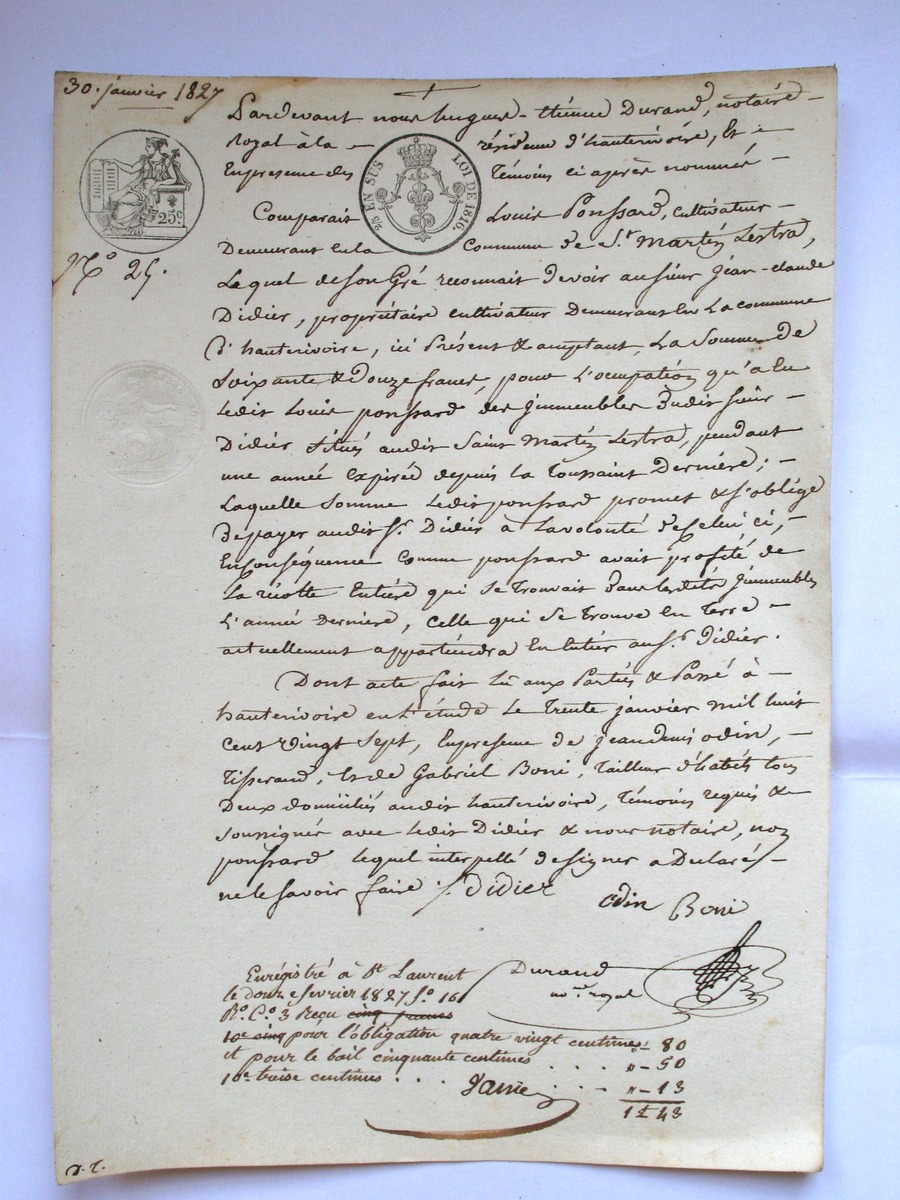 30. janvier 1827
Pardevant nous hugues-étienne Durand, notaire
royal à la résidence d'hauterivoire, Et
En presence des Témoins ci après nommés
25 EN SUS LOI DE 1816.
25c
Comparait Louis Ponssard, cultivateur
Demeurant en la Commune de St. Martin Lestra,
N.o 25.
Lequel de son Gré reconnait devoir au sieur jean-claude
Didier, propriétaire cultivateur Demeurant En La commune
d'hauterivoire, ici Présent & acceptant, La Somme de
Soixante & Douze francs, pour L'occupation qu'a Eu
Ledit Louis ponssard des jmmeubles Dudit sieur
Didier, situés audit Saint Martin Lestra, pendant
une année Expirée depuis la Toussaint Dernière;
Laquelle Somme Ledit ponssard promet & s'oblige
De payer audit Sr. Didier à La volonté de Celui ci,
En conséquence comme ponssard avait profité de
La récolte Entière qui se Trouvait Dans Lesdits jmmeubles
L'année Dernière, celle qui se trouve En Terre
actuellement appartiendra En Entier au Sr. Didier.
Dont acte fait Lu aux Parties & Passé à
hauterivoire en L'étude Le Trente janvier mil huit
cent vingt sept, En presence de jean denis odin,
Tisserand, Et de Gabriel Boni, Tailleur d'habits tous
Deux domiciliés audit hauterivoire, Témoins requis &
soussignés avec Ledit Didier & nous notaire, non
ponssard lequel interpellé de signer a Declaré
ne le savoir faire. Didier
odin Boni
Enrégistré à St Laurent
le douze fevrier 1827 f.o 16
R.o C.o 3 Reçu cinq francs
10e cinq pour l'obligation quatre vingt centimes „ - 80
et pour le bail cinquante centimes . . . . „ - 50
10e treize centimes . . . . „ - 13
1 43
Durand
no.re royal